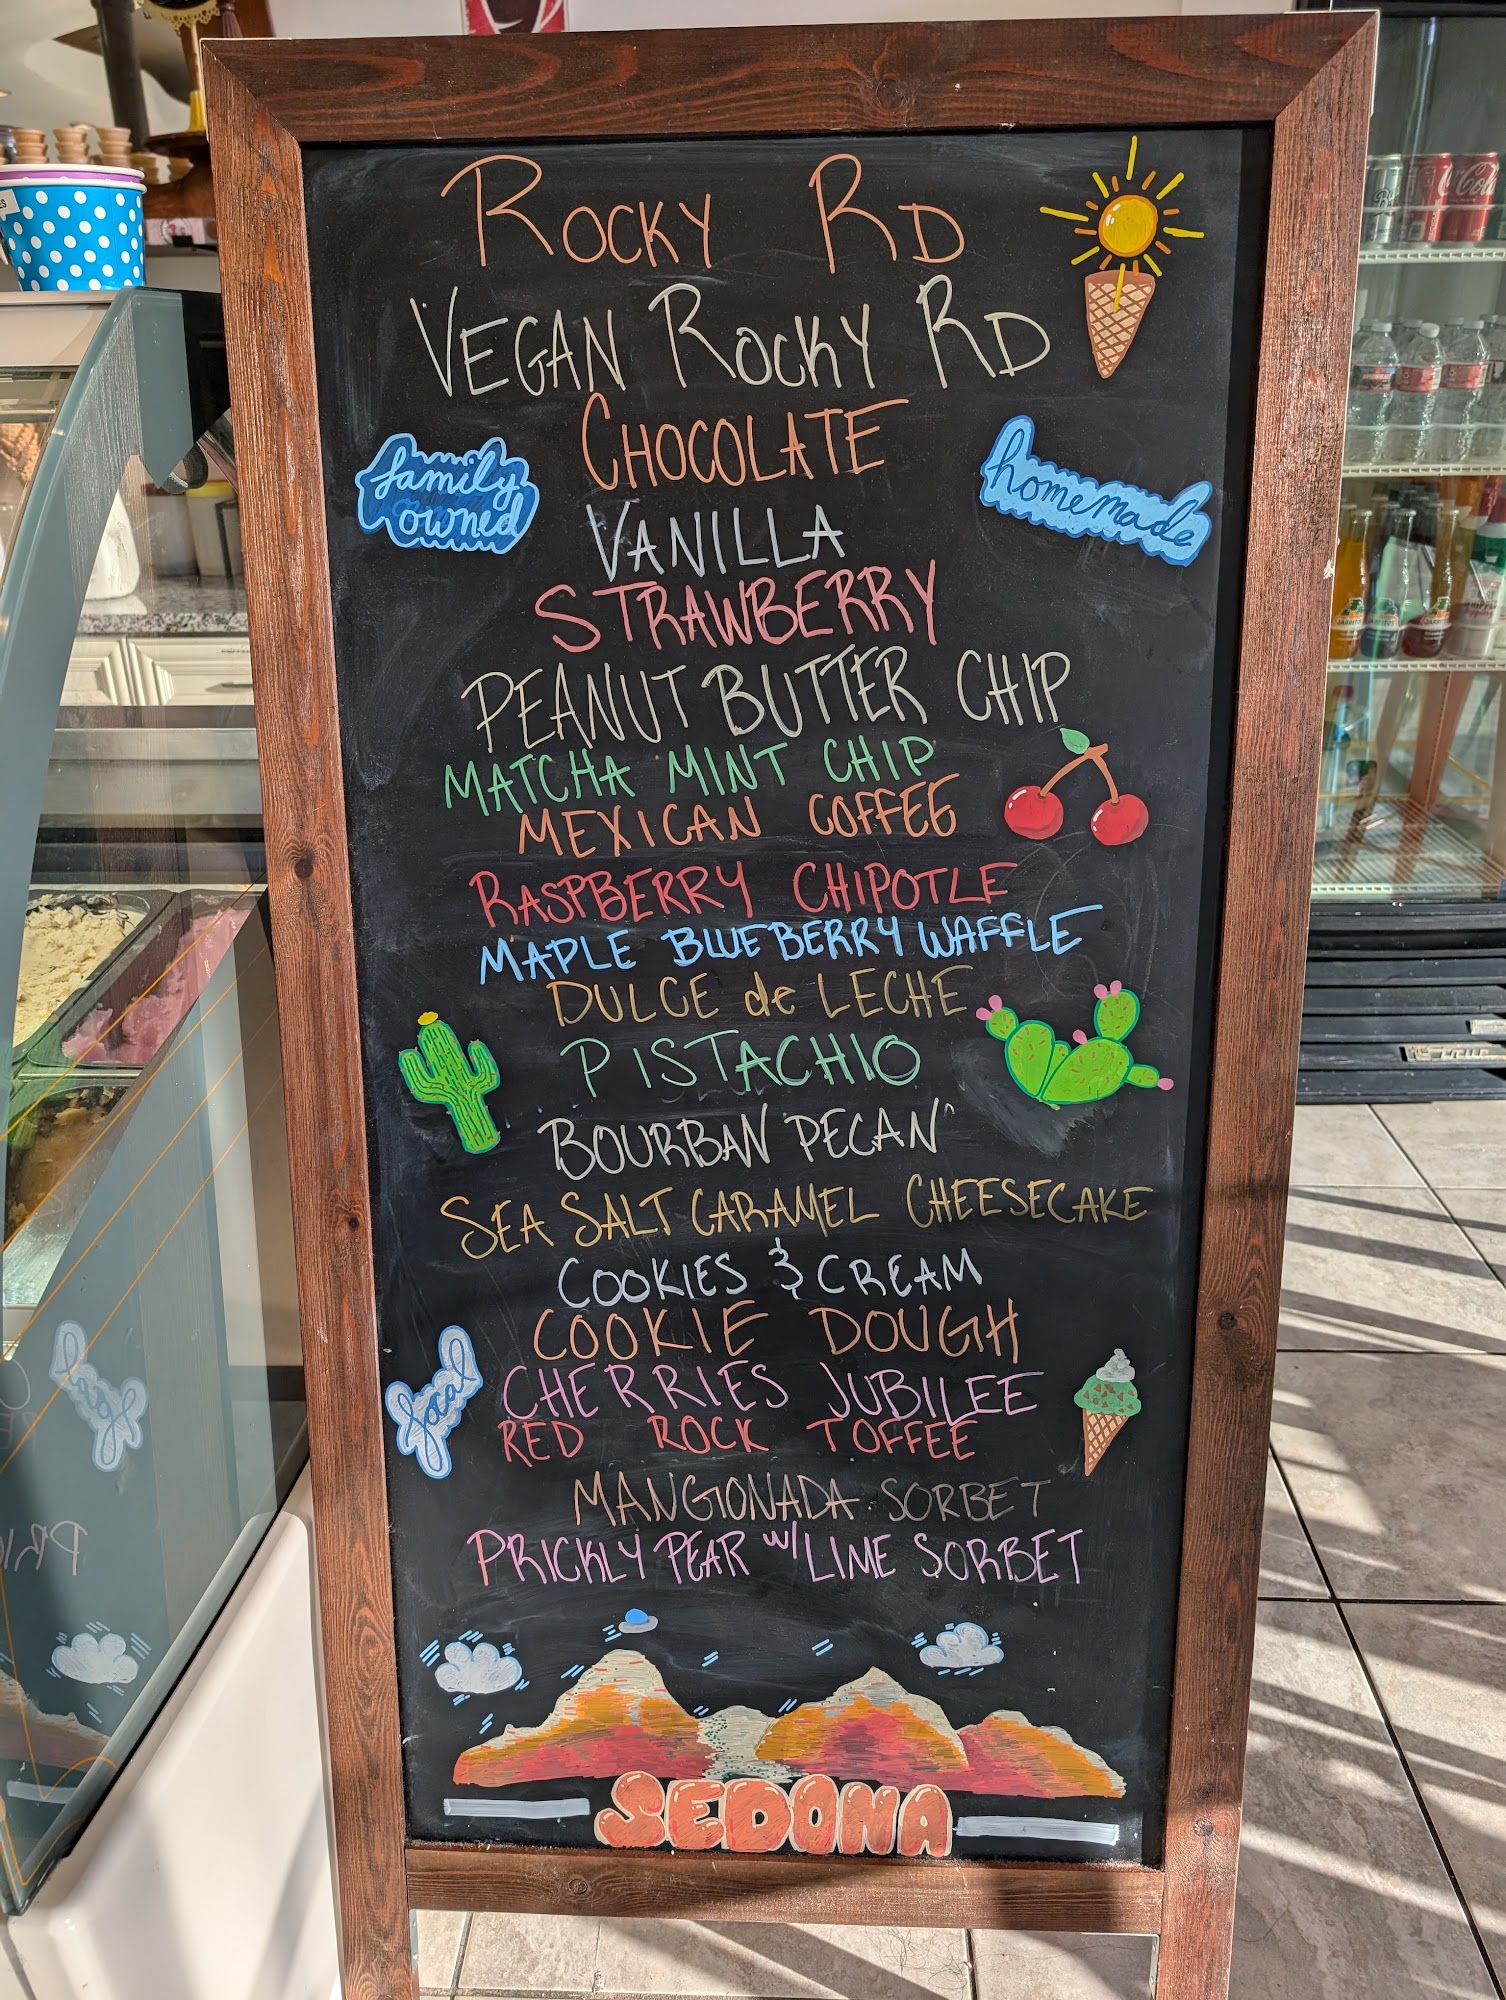 ROCKY RD
VEGAN ROCKY RD
CHOCOLATE
family
owned
homemade
VANILLA
STRAWBERRY
PEANUT BUTTER CHIP
MATCHA MINT CHIP
MEXICAN COFFEE
RASPBERRY CHIPOTLE
MAPLE BLUEBERRY WAFFLE
DULCE de LECHE
PISTACHIO
BOURBAN PECAN
SEA SALT CARAMEL CHEESECAKE
COOKIES & CREAM
COOKIE DOUGH
local
CHERRIES JUBILEE
RED ROCK TOFFEE
MANGIONADA SORBET
PRICKLY PEAR w/ LIME SORBET
SEDONA